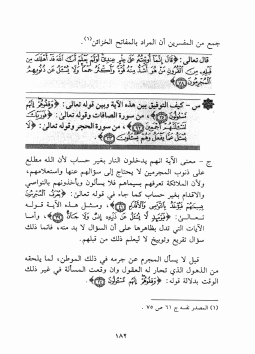 جمع من المفسرين أن المراد بالمفاتح الخزائن(١).
قال تعالى: ﴿قَالَ إِنَّمَا أُوتِيتُهُ عَلَىٰ عِلْمٍ عِندِي أَوَلَمْ يَعْلَمْ أَنَّ اللَّهَ قَدْ أَهْلَكَ مِن
قَبْلِهِ مِنَ الْقُرُونِ مَنْ هُوَ أَشَدُّ مِنْهُ قُوَّةً وَأَكْثَرُ جَمْعًا وَلَا يُسْأَلُ عَن ذُنُوبِهِمُ
الْمُجْرِمُونَ ﴿٧٨﴾﴾
س - كيف التوفيق بين هذه الآية وبين قوله تعالى: ﴿وَقِفُوهُمْ إِنَّهُم
مَّسْئُولُونَ﴾، من سورة الصافات وقوله تعالى: ﴿فَوَرَبِّكَ
لَنَسْأَلَنَّهُمْ أَجْمَعِينَ﴾، من سورة الحجر وقوله تعالى: ﴿لَا
يُسْأَلُ عَمَّا يَفْعَلُ وَهُمْ يُسْأَلُونَ﴾
ج - معنى الآية انهم يدخلون النار بغير حساب لأن الله مطلع
على ذنوب المجرمين لا يحتاج إلى سؤالهم عنها واستعلامهم،
ولأن الملائكة تعرفهم بسيماهم فلا يسألون ويأخذونهم بالنواصي
والاقدام بغير حساب كما جاء في قوله تعالى: ﴿يُعْرَفُ الْمُجْرِمُونَ
بِسِيمَاهُمْ فَيُؤْخَذُ بِالنَّوَاصِي وَالْأَقْدَامِ﴾، ومثل هذه الآية قوله
تعالى: ﴿فَيَوْمَئِذٍ لَّا يُسْأَلُ عَن ذَنبِهِ إِنسٌ وَلَا جَانٌّ﴾، وأما
الآيات التي تدل بظاهرها على أن السؤال لا بد منه، فانما ذلك
سؤال تقريع وتوبيخ لا ليعلم ذلك من قبلهم.
قيل لا يسأل المجرم عن جرمه في ذلك الموطن، لما يلحقه
من الذهول الذي تحار له العقول وان وقعت المسألة في غير ذلك
الوقت بدلالة قوله: ﴿وَقِفُوهُمْ إِنَّهُم مَّسْئُولُونَ﴾.
(١) المصدر نفسه ج ٦١ ص ٧٥ .
١٨٢